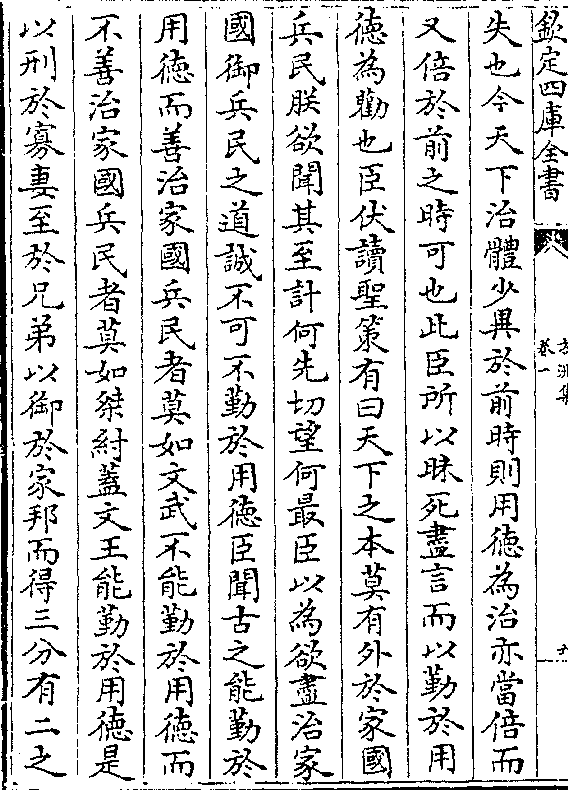 欽定四庫全書
方洲集
卷一
失也今天下治體少異於前時則用徳為治亦當倍而
又倍於前之時可也此臣所以昧死盡言而以勤於用
徳為勸也臣伏讀聖策有曰天下之本莫有外於家國
兵民朕欲聞其至計何先切望何最臣以為欲盡治家
國御兵民之道誠不可不勤於用徳臣聞古之能勤於
用徳而善治家國兵民者莫如文武不能勤於用徳而
不善治家國兵民者莫如桀紂蓋文王能勤於用徳是
以刑於寡妻至於兄弟以御於家邦而得三分有二之